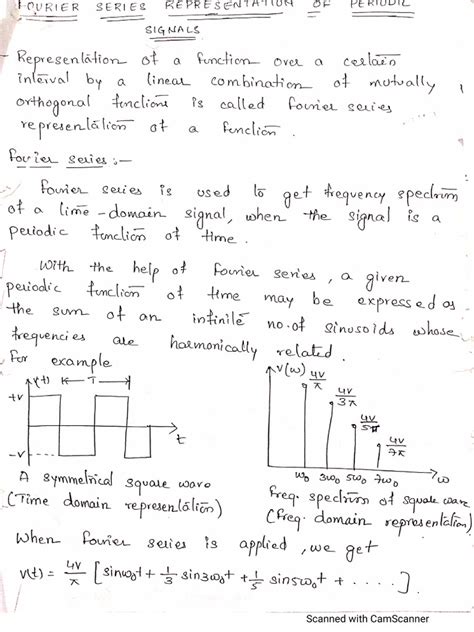 FOURIER SERIES REPRESENTATION OF PERIODIC
SIGNALS
Representation of a function over a certain
interval by a linear combination of mutually
orthogonal functions is called fourier series
representation of a function.
Fourier series :-
Fourier series is used to get frequency spectrum
of a time-domain signal, when the signal is a
periodic function of time.
With the help of Fourier series, a given
periodic function of time may be expressed as
the sum of an infinite no. of sinusoids whose
frequencies are harmonically related.
For example
v(t) ←T→
+V
-V
t
A symmetrical square wave
(Time domain representation)
V(ω)
4V/π
4V/3π
4V/5π
4V/7π
ω₀ 3ω₀ 5ω₀ 7ω₀ ω
freq. spectrum of square wave
(freq. domain representation)
When fourier series is applied, we get
v(t) = 4V/π [sinω₀t + 1/3 sin3ω₀t + 1/5 sin5ω₀t + ....].
Scanned with CamScanner